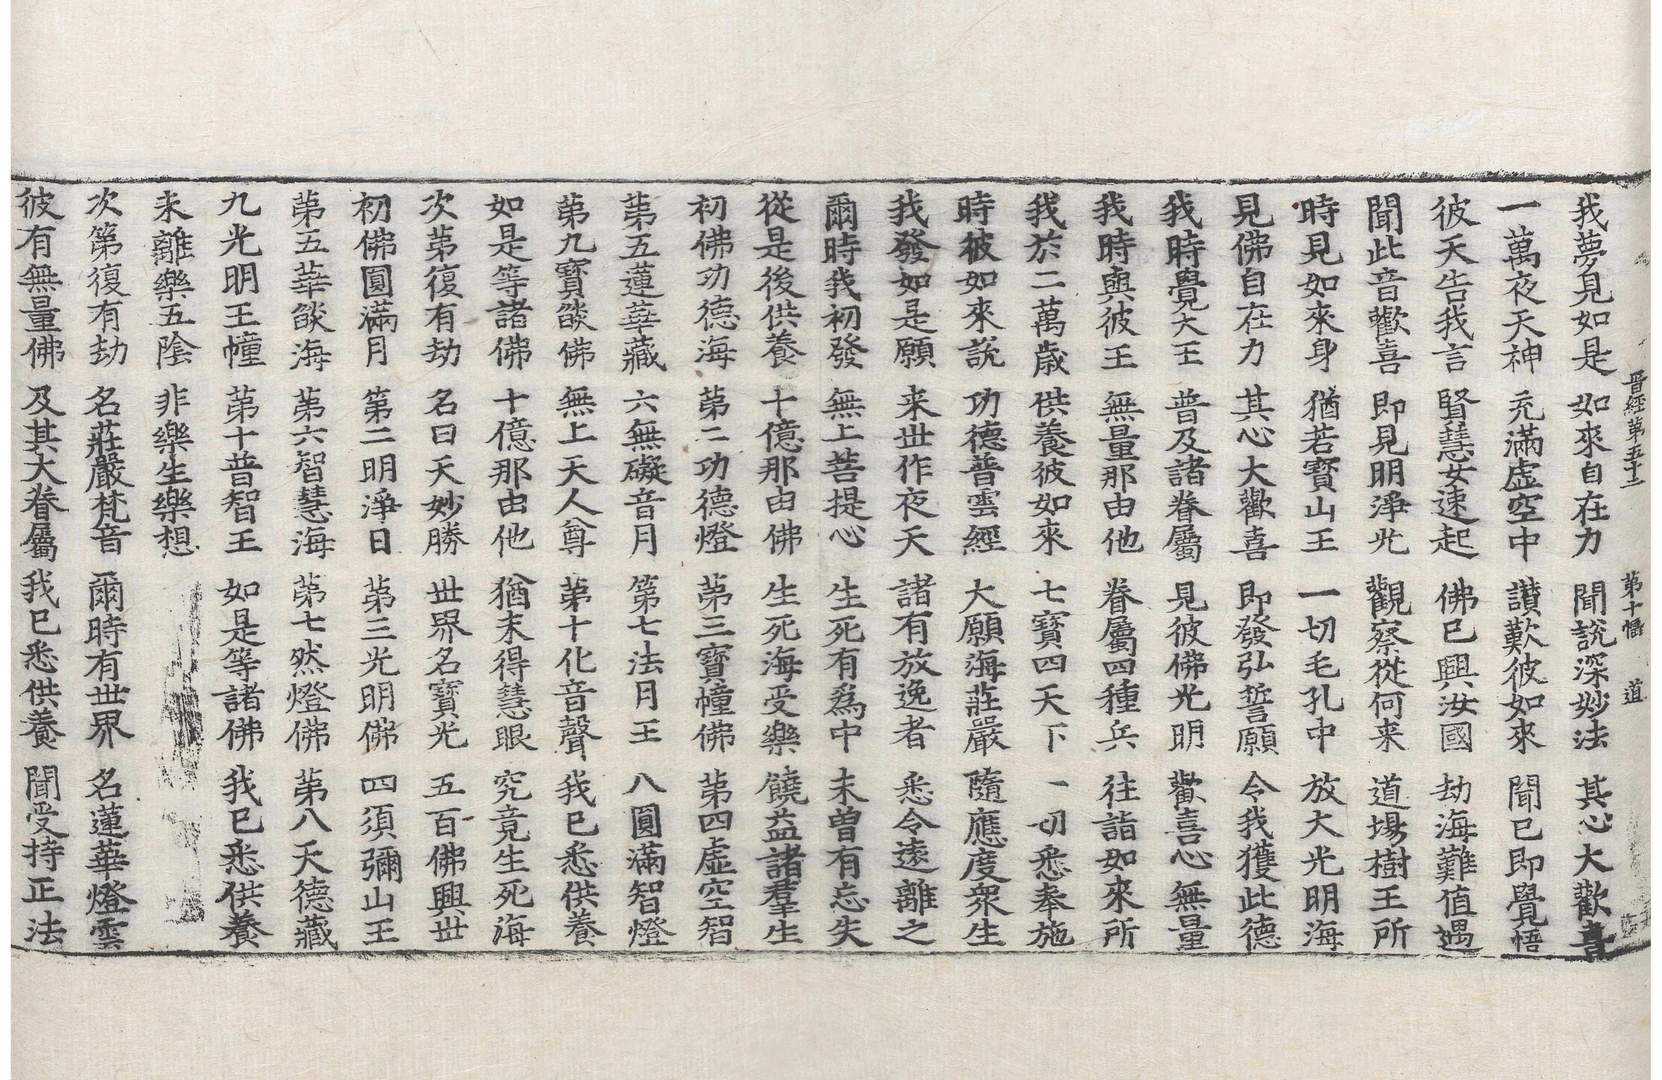 晉經第五十二 第十幅 道
我夢見如是 如來自在力 聞說深妙法 其心大歡喜
一萬夜天神 充滿虛空中 讃歎彼如來 聞已即覺悟
彼天告我言 賢慧女速起 佛已興汝國 劫海難值遇
聞此音歡喜 即見明淨光 觀察從何来 道場樹王所
時見如來身 猶若寶山王 一切毛孔中 放大光明海
見佛自在力 其心大歡喜 即發弘誓願 令我獲此德
我時覺大王 普及諸眷屬 見彼佛光明 歡喜心無量
我時與彼王 無量那由他 眷屬四種兵 往詣如來所
我於二萬歲 供養彼如來 七寶四天下 一切悉奉施
時彼如來說 功德普雲經 大願海莊嚴 隨應度衆生
我發如是願 来世作夜天 諸有放逸者 悉令遠離之
爾時我初發 無上菩提心 生死有為中 未曾有忘失
從是後供養 十億那由佛 生死海受樂 饒益諸羣生
初佛功德海 第二功德燈 第三寶幢佛 第四虛空智
第五蓮華藏 六無礙音月 第七法月王 八圓滿智燈
第九寶燄佛 無上天人尊 第十化音聲 我已悉供養
如是等諸佛 十億那由他 猶未得慧眼 究竟生死海
次第復有劫 名曰天妙勝 世界名寶光 五百佛興世
初佛圓滿月 第二明淨日 第三光明佛 四須彌山王
第五華燄海 第六智慧海 第七然燈佛 第八天德藏
九光明王幢 第十普智王 如是等諸佛 我已悉供養
来離樂五陰 非樂生樂想
次第復有劫 名莊嚴梵音 爾時有世界 名蓮華燈雲
彼有無量佛 及其大眷屬 我已悉供養 聞受持正法